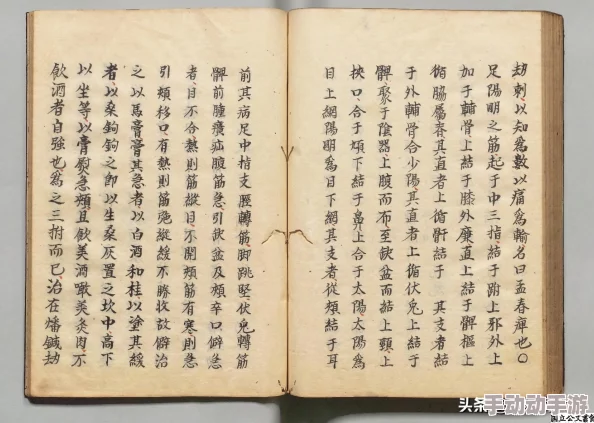 劫刺以知爲數以痛爲輸名曰孟春痺也〇
足陽明之筋起于中三指結于跗上邪外上
加于輔骨上結于膝外廉直上結于髀樞上
循脇屬脊其直者上循骭結于 其支者結
于外輔骨合少陽其直者上循伏兔上結于
髀聚于陰器上腹而布至缺盆而結上頸上
挾口合于頄下結于鼻上合于太陽太陽爲
目上網陽明爲目下網其支者從頰結于耳
前其病足中指支脛轉筋脚跳堅伏兔轉筋
髀前腫㿉疝腹筋急引缺盆及頰卒口僻急
者目不合熱則筋縱目不開頰筋有寒則急
引頰移口有熱則筋弛縱緩不勝收故僻治
之以馬膏膏其急者以白酒和桂以塗其緩
者以桑鉤鉤之即以生桑灰置之坎中高下
以坐等以膏熨急頰且飲美酒噉美炙肉不
飲酒者自強也爲之三拊而已治在燔鍼劫
头条
手动动手游
国立公文書館